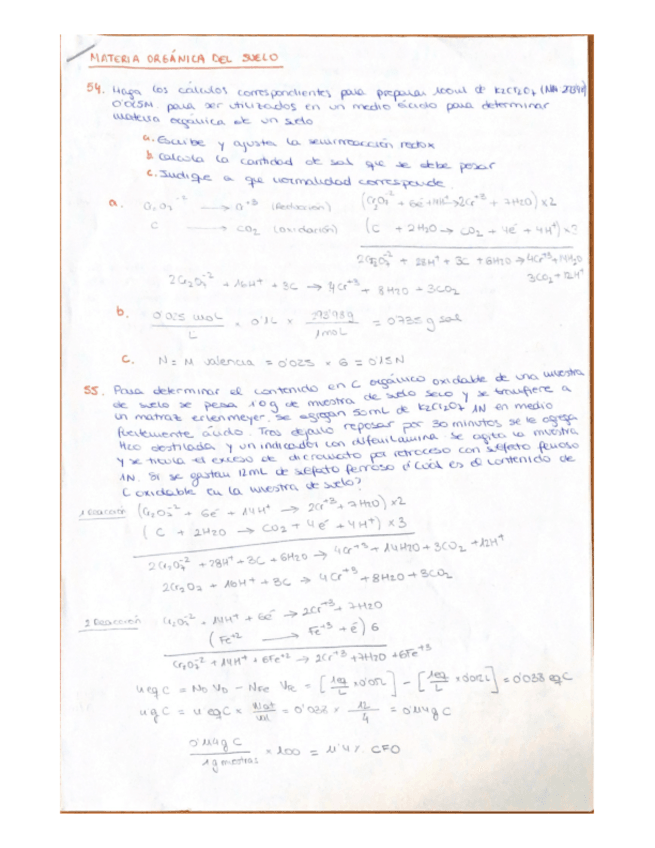 MATERIA ORGÁNICA DEL SUELO
54. Haga los cálculos correspondientes para preparar 100ml de K2Cr2O7
0'025M para ser utilizados en un medio ácido para determinar
materia orgánica de un suelo
a. Escribe y ajusta la semirreacción redox
b. Calcula la cantidad de sal que se debe pesar
c. Indique a que normalidad corresponde.
a. → (Reducción) (Cr2O7⁻² + 6e⁻ + 14H⁺ → 2Cr⁺³ + 7H2O) × 2
C → CO2 (oxidación) (C + 2H2O → CO2 + 4e⁻ + 4H⁺) × 3
2Cr2O7⁻² + 28H⁺ + 3C + 6H2O → 4Cr⁺³ + 14H2O
3CO2 + 12H⁺
2Cr2O7⁻² + 16H⁺ + 3C → 4Cr⁺³ + 8H2O + 3CO2
b. 0'025 mol / L × 0'1L × 293'98g / 1mol = 0'735g sal
c. N = M valencia = 0'025 × 6 = 0'15N
55. Para determinar el contenido en C orgánico oxidable de una muestra
de suelo se pesa 1'0g de muestra de suelo seco y se transfiere a
un matraz erlenmeyer, se agregan 50mL de K2Cr2O7 1N en medio
fuertemente ácido. Tras dejarlo reposar por 30 minutos se le agrega
H2O destilada y un indicador con difenilamina. Se agita la muestra
y se titula el exceso de dicromato por retroceso con sulfato ferroso
1N. Si se gastan 12mL de sulfato ferroso ¿Cuál es el contenido de
C oxidable en la muestra de suelo?
1 Reacción (Cr2O7⁻² + 6e⁻ + 14H⁺ → 2Cr⁺³ + 7H2O) × 2
(C + 2H2O → CO2 + 4e⁻ + 4H⁺) × 3
2Cr2O7⁻² + 28H⁺ + 3C + 6H2O → 4Cr⁺³ + 14H2O + 3CO2 + 12H⁺
2Cr2O7 + 16H⁺ + 3C → 4Cr⁺³ + 8H2O + 3CO2
2 Reacción Cr2O7⁻² + 14H⁺ + 6e⁻ → 2Cr⁺³ + 7H2O
(Fe⁺² → Fe⁺³ + e⁻) 6
Cr2O7⁻² + 14H⁺ + 6Fe⁺² → 2Cr⁺³ + 7H2O + 6Fe⁺³
= [1eq / L × 0'05L] − [1eq / L × 0'012L] = 0'038 eq C
= 0'038 × 12 / 4 = 0'114g C
0'114g C / 1g muestras × 100 = 11'4% CFO